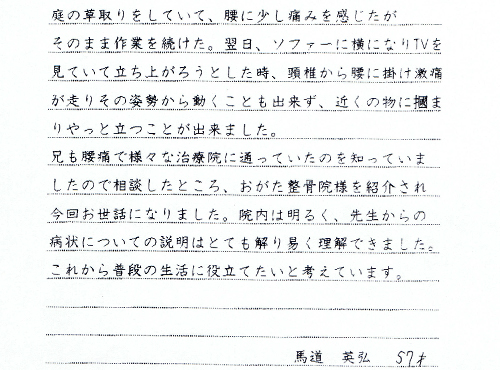 庭の草取りをしていて、腰に少し痛みを感じたが
そのまま作業を続けた。翌日、ソファーに横になりTVを
見ていて立ち上がろうとした時、頸椎から腰に掛け激痛
が走りその姿勢から動くことも出来ず、近くの物に掴ま
りやっと立つことが出来ました。
兄も腰痛で様々な治療院に通っていたのを知っていま
したので相談したところ、おがた整骨院様を紹介され
今回お世話になりました。院内は明るく、先生からの
病状についての説明はとても解り易く理解できました。
これから普段の生活に役立てたいと考えています。
馬道 英弘 57才